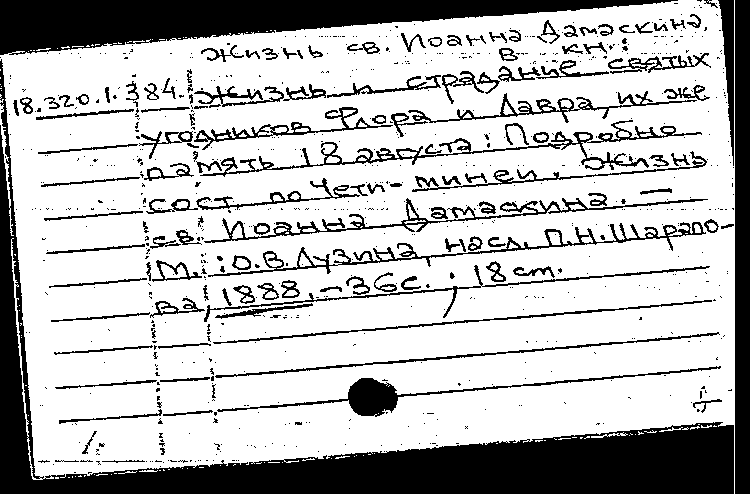 Жизнь св. Иоанна Дамаскина.
в кн.:
18.320.1.384. Жизнь и страдание святых
угодников Флора и Лавра, их же
память 18 августа: Подробно
сост. по Чети-минеи. Жизнь
св. Иоанна Дамаскина. —
М.: О.В. Лузина, насл. П.Н. Шарапо-
ва, 1888. – 36 с. ; 18 cm.